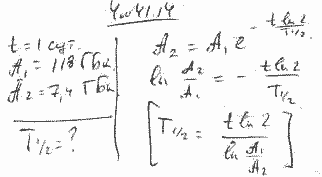 41.14
t = 1 сут.
A₁ = 118 ГБк
A₂ = 7,4 ГБк
T₁/₂ = ?
A₂ = A₁ e^(- t ln 2 / T₁/₂)
ln A₂/A₁ = - t ln 2 / T₁/₂
[T₁/₂ = t ln 2 / ln A₁/A₂]